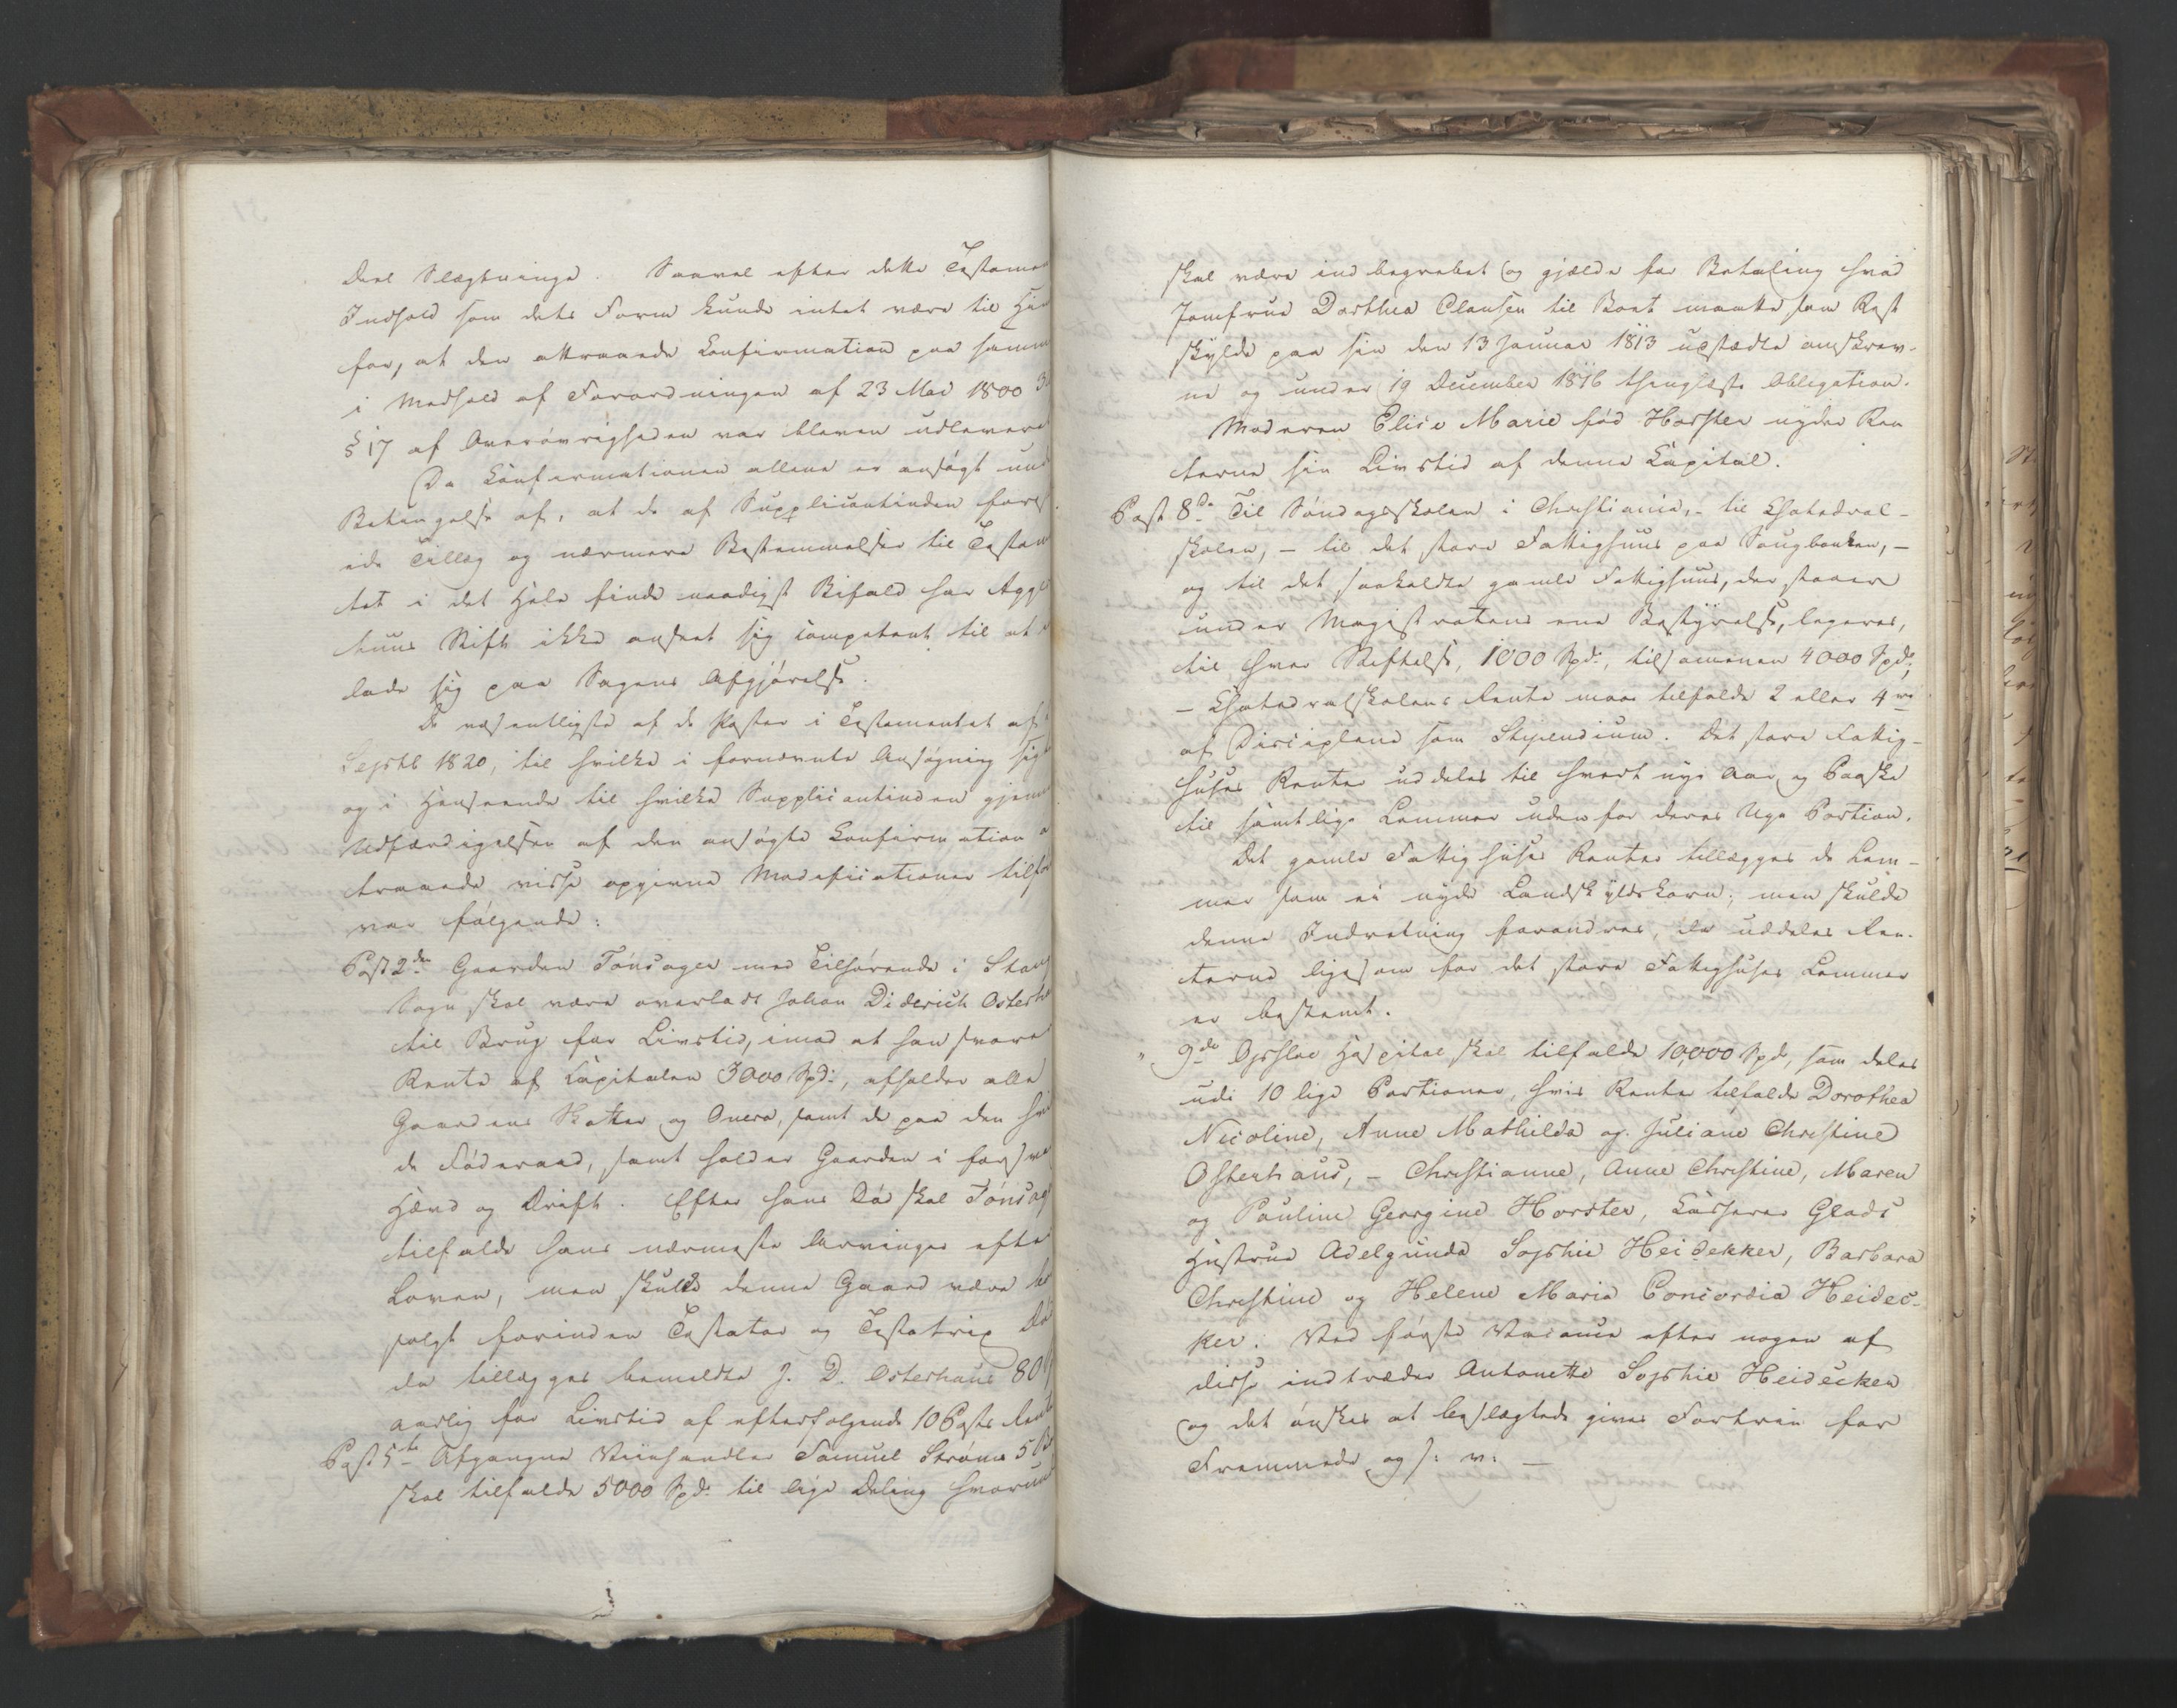 deel Slægtninge. Saavel efter dette Testamen
Indhold som dets Form kunde intet være til Hin
for, at den attraaede Confirmation paa samme
i Medhold af Forordningen af 23 Mai 1800
§ 17 af Overøvrigheden var bleven udleveret
Da Confirmationen allene er ansøgt und
Betingelse af, at de af Supplicantinden fores
ede Tillæg og nærmere Bestemmelser til Testam
tet i det Hele finde naadigst Bifald har Agge
huus Stift ikke anseet sig competent til at
lade sig paa Sagens Afgjørelse.
De væsentligste af de Poster i Testamentet af
Septbr 1820, til hvilke i fornævnte Ansøgning sigt
og i Henseende til hvilke Supplicantinden gjenn
Udfærdigelsen af den ansøgte Confirmation a
traaede visse opgivne Modificationer tilfør
var følgende:
Post 2den Gaarden Tønsager med Tilhørende i Stang
Sogn skal være overladt Johan Diderich Osterha
til Brug for Livstid, imod at han svare
Rente af Capitalen 3000 Spd:, afholder alle
Gaardens Skatter og Onera, samt de paa den hvi
de Føderaad, samt holder Gaarden i forsva
Hævd og Drift. Efter hans Død skal Tønsag
tilfalde hans nærmeste Arvinger efter
Loven, men skulde denne Gaard være bor
solgt forinden Testator og Testatrix Dø
da tillægges bemeldte J. D. Osterhaus 80
aarlig for Livstid af efterfølgende 10 Posts Rente
Post 5te Afgangne Viinhandler Samuel Strøms 5 Bø
skal tilfalde 5000 Spd: til lige Deling hvorun
skal være indbegrebet og gjælde for Betaling hvad
Jomfrue Dorthea Clausen til Boet maatte som Rest
skylde paa sin den 13 Januar 1813 udstædte omskrev-
ne og under 19 December 1816 thinglæste Obligation.
Moderen Elise Marie fød Horster nyder Ren
terne sin Livstid af denne Capital.
Post 8de Til Søndagsskolen i Christiania, - til Chatedral-
skolen, - til det store Fattighuus paa Saugbanken, -
og til det saakaldte gamle Fattighuus, der staaer
under Magistratens ene Bestyrelse, legeres,
til hver Stiftelse, 1000 Spd:, tilsammen 4000 Spd:,
- Chatedralskolens Rente maae tilfalde 2 eller 4re
af Disciplene som Stipendium. Det store Fattig-
huses Renter uddeles til hvert nyt Aar og Paaske
til samtlige Lemmer uden for deres Uge Portion.
Det gamle Fattighuses Renter tillægges de Lem-
mer som ei nyde Landskyldskorn; men skulde
denne Indretning forandres, da uddeles Ren-
terne ligesom for det store Fattighuses Lemmer
er bestemt.
" 9de Opsloe Hospital skal tilfalde 10,000 Spd, som deles
udi 10 lige Portioner, hvis Renter tilfalde Dorothea
Nicoline, Anne Mathilda og Juliane Christine
Osterhaus, - Christianne, Anne Christine, Maren
og Pauline Georgine Horster, Casserer Glads
Hustrue Adelgunda Sophie Heidekker, Barbara
Christine og Helene Maria Concordia Heidec-
ker. Ved første Vacance efter nogen af
disse indtræder Antonette Sophie Heidecker
og det ønskes at beslægtede gives Fortrin for
Fremmede og s: v: —